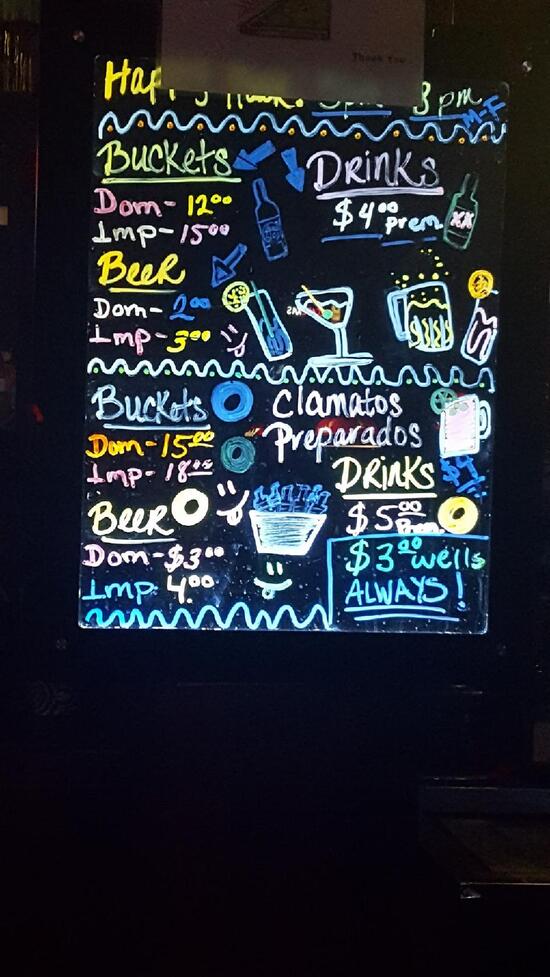 Thank You
Happy Hour: 3pm - 8pm
M-F
Buckets
Dom- 12⁰⁰
Imp- 15⁰⁰
Drinks
$4⁰⁰ prem
XX
Beer
Dom- 2⁰⁰
Imp- 3⁰⁰
Buckets
Dom- 15⁰⁰
Imp- 18⁰⁰
Clamatos
Preparados
Drinks
$5⁰⁰ Prem.
Beer
Dom- $3⁰⁰
Imp 4.⁰⁰
$3⁰⁰ wells
ALWAYS!